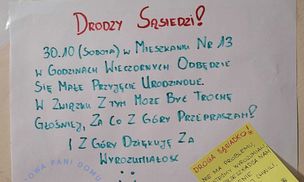 DRODZY SĄSIEDZI!
30.10 (SOBOTA) W MIESZKANIU NR 13
W GODZINACH WIECZORNYCH ODBĘDZIE
SIĘ MAŁE PRZYJĘCIE URODZINOWE.
W ZWIĄZKU Z TYM MOŻE BYĆ TROCHĘ
GŁOŚNIEJ, ZA CO Z GÓRY PRZEPRASZAM!
I Z GÓRY DZIĘKUJĘ ZA
WYROZUMIAŁOŚĆ
PANI DOMU
DROGA SĄSIADKO!
NIE MA PROBLEMU